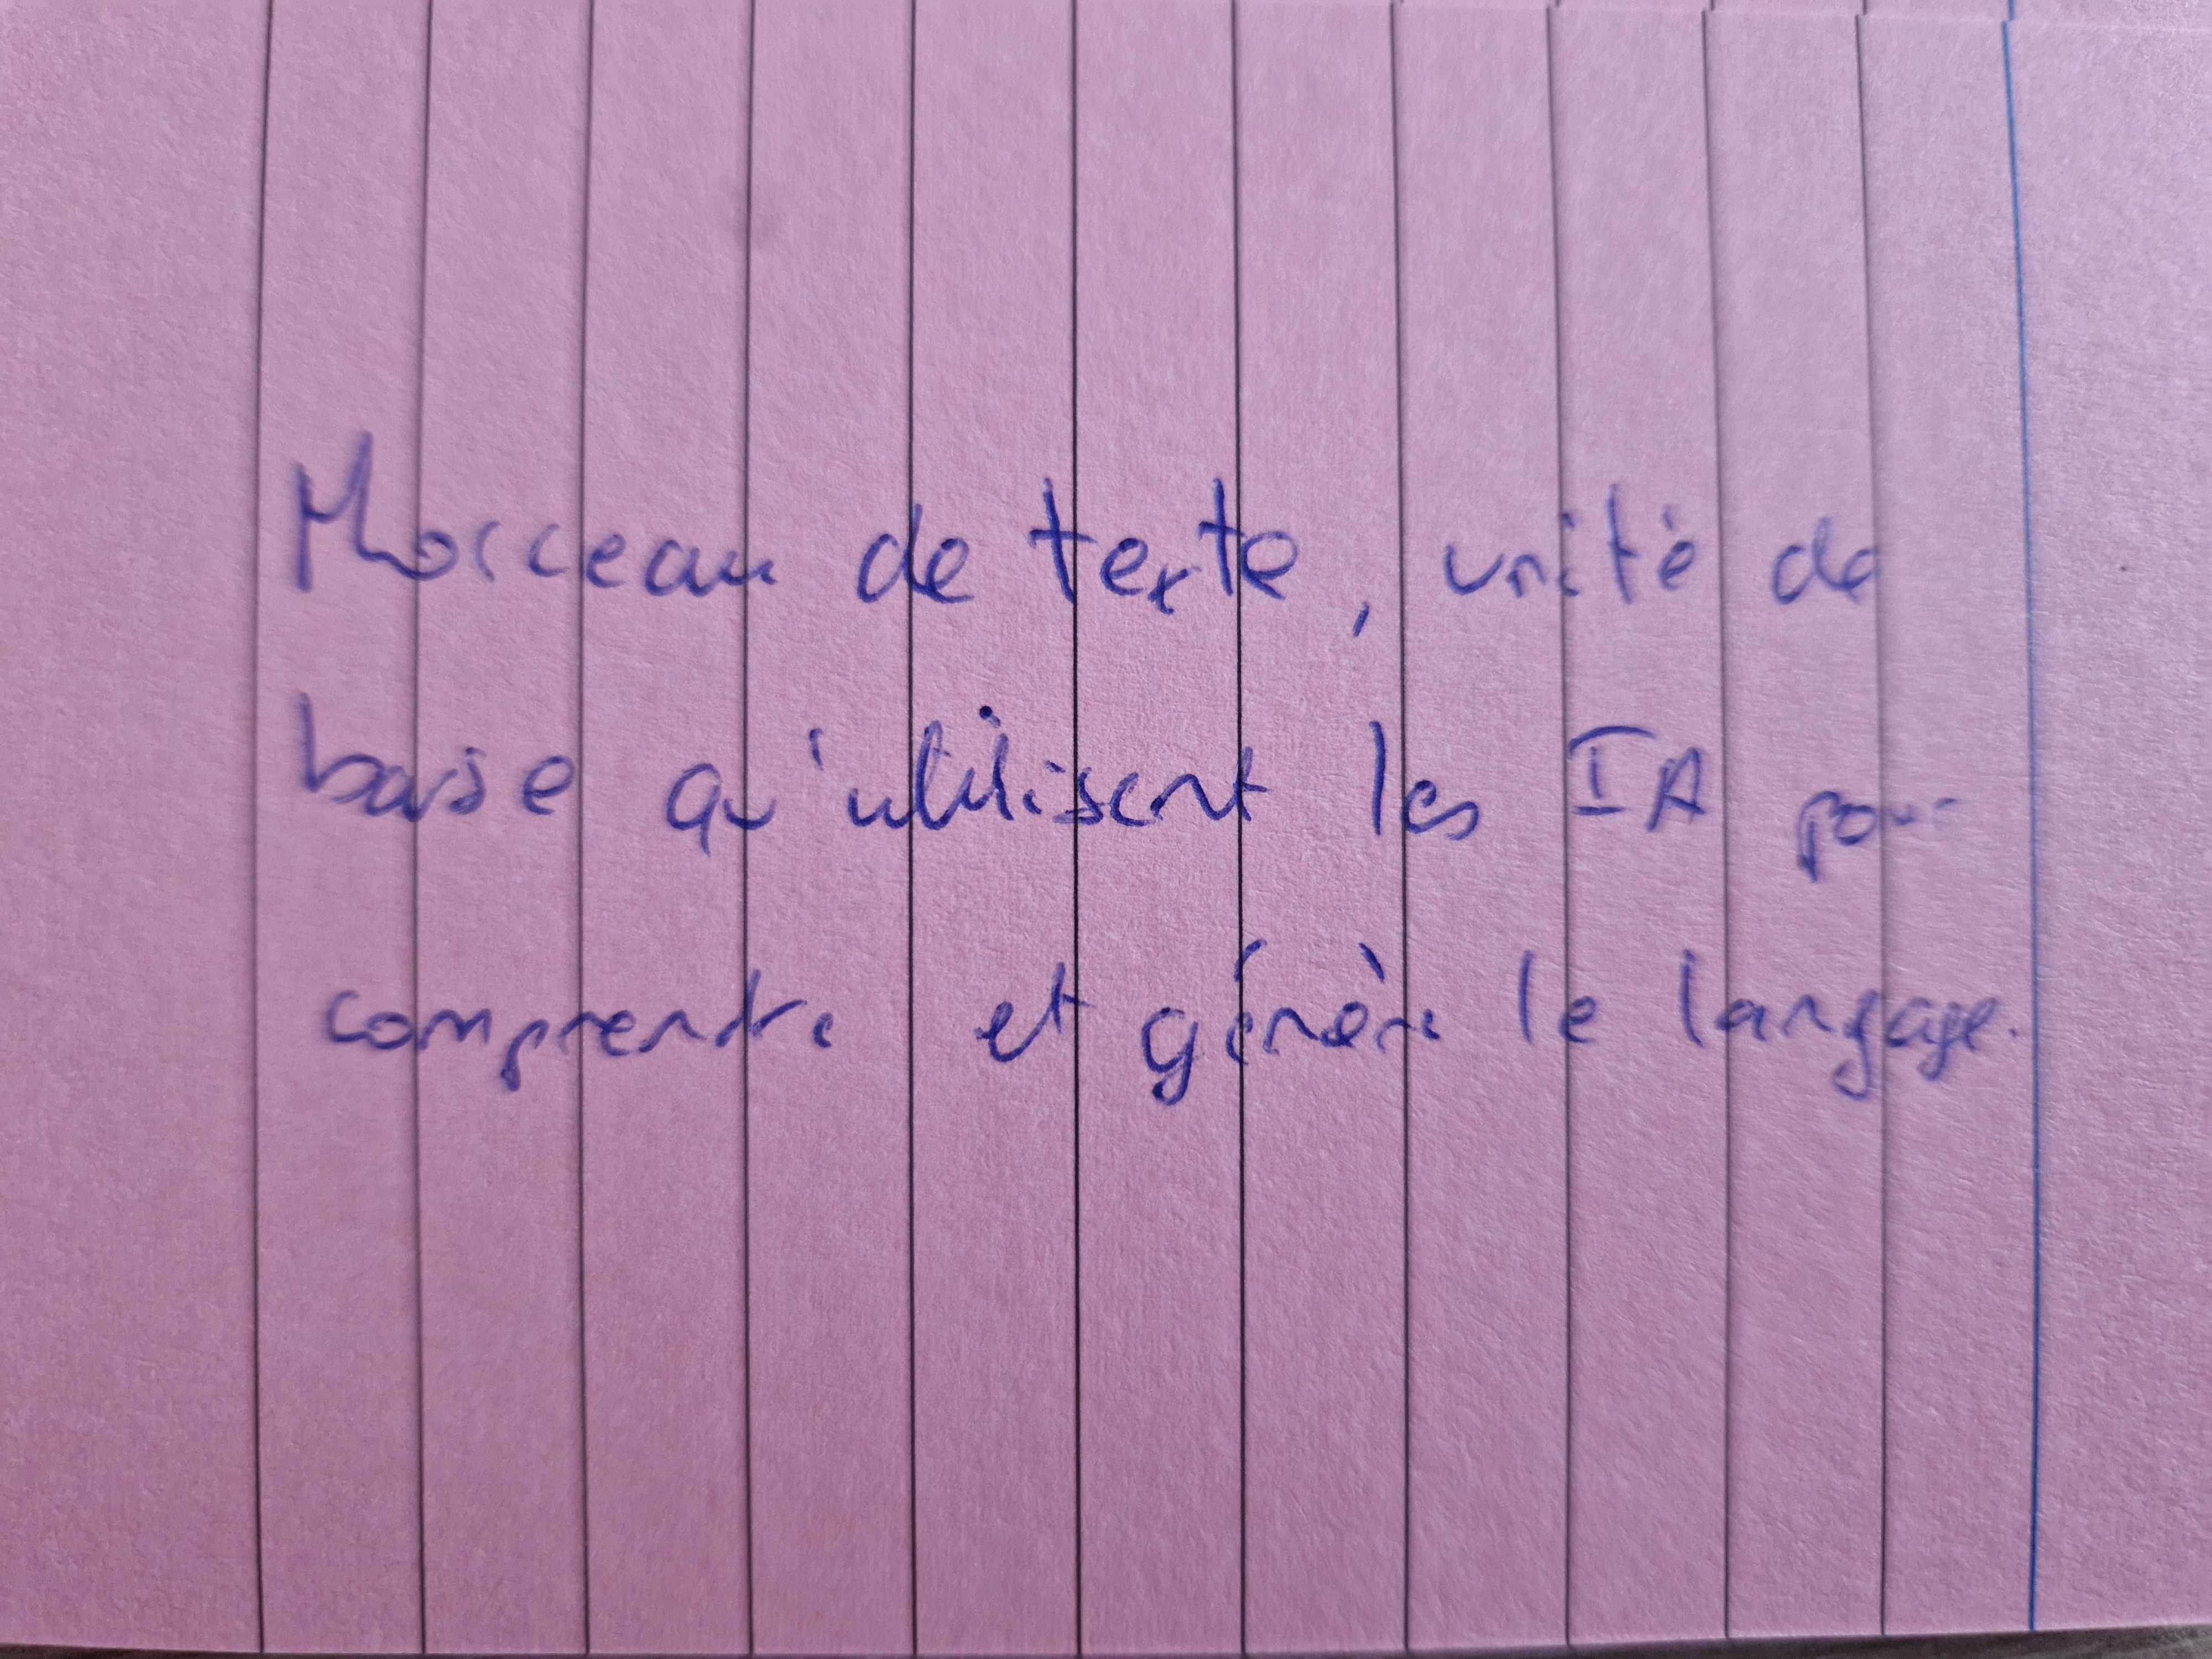 Morceau de texte, unité de
base qu'utilisent les IA pour
comprendre et génère le langage.